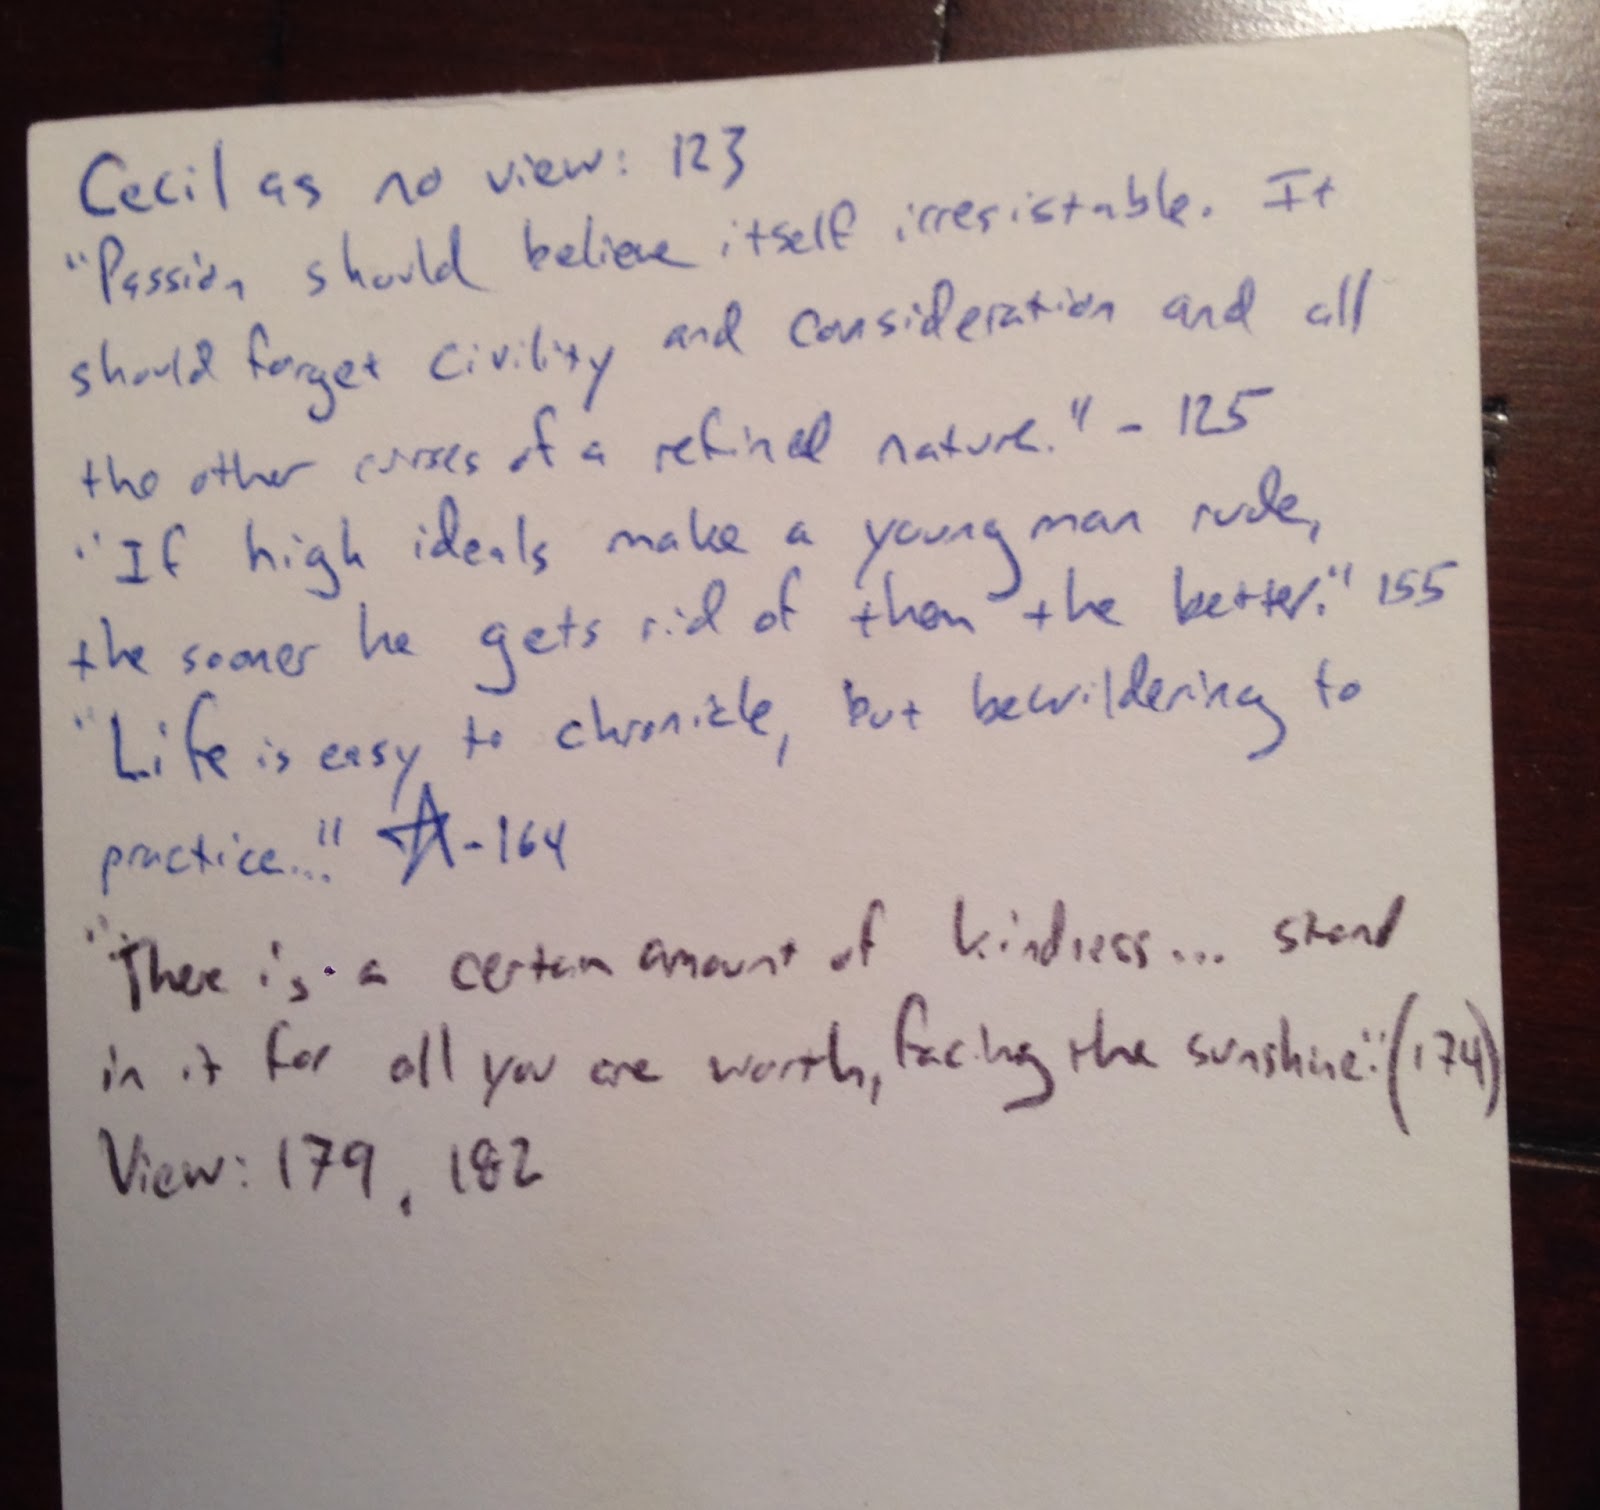 Cecil as no view: 123
"Passion should believe itself irresistable. It
should forget civility and consideration and all
the other curses of a refined nature." - 125
"If high ideals make a young man rude,
the sooner he gets rid of them the better." 155
"Life is easy to chronicle, but bewildering to
practice..." ☆ - 164
"There is a certain amount of kindness... stand
in it for all you are worth, facing the sunshine." (174)
View: 179, 182